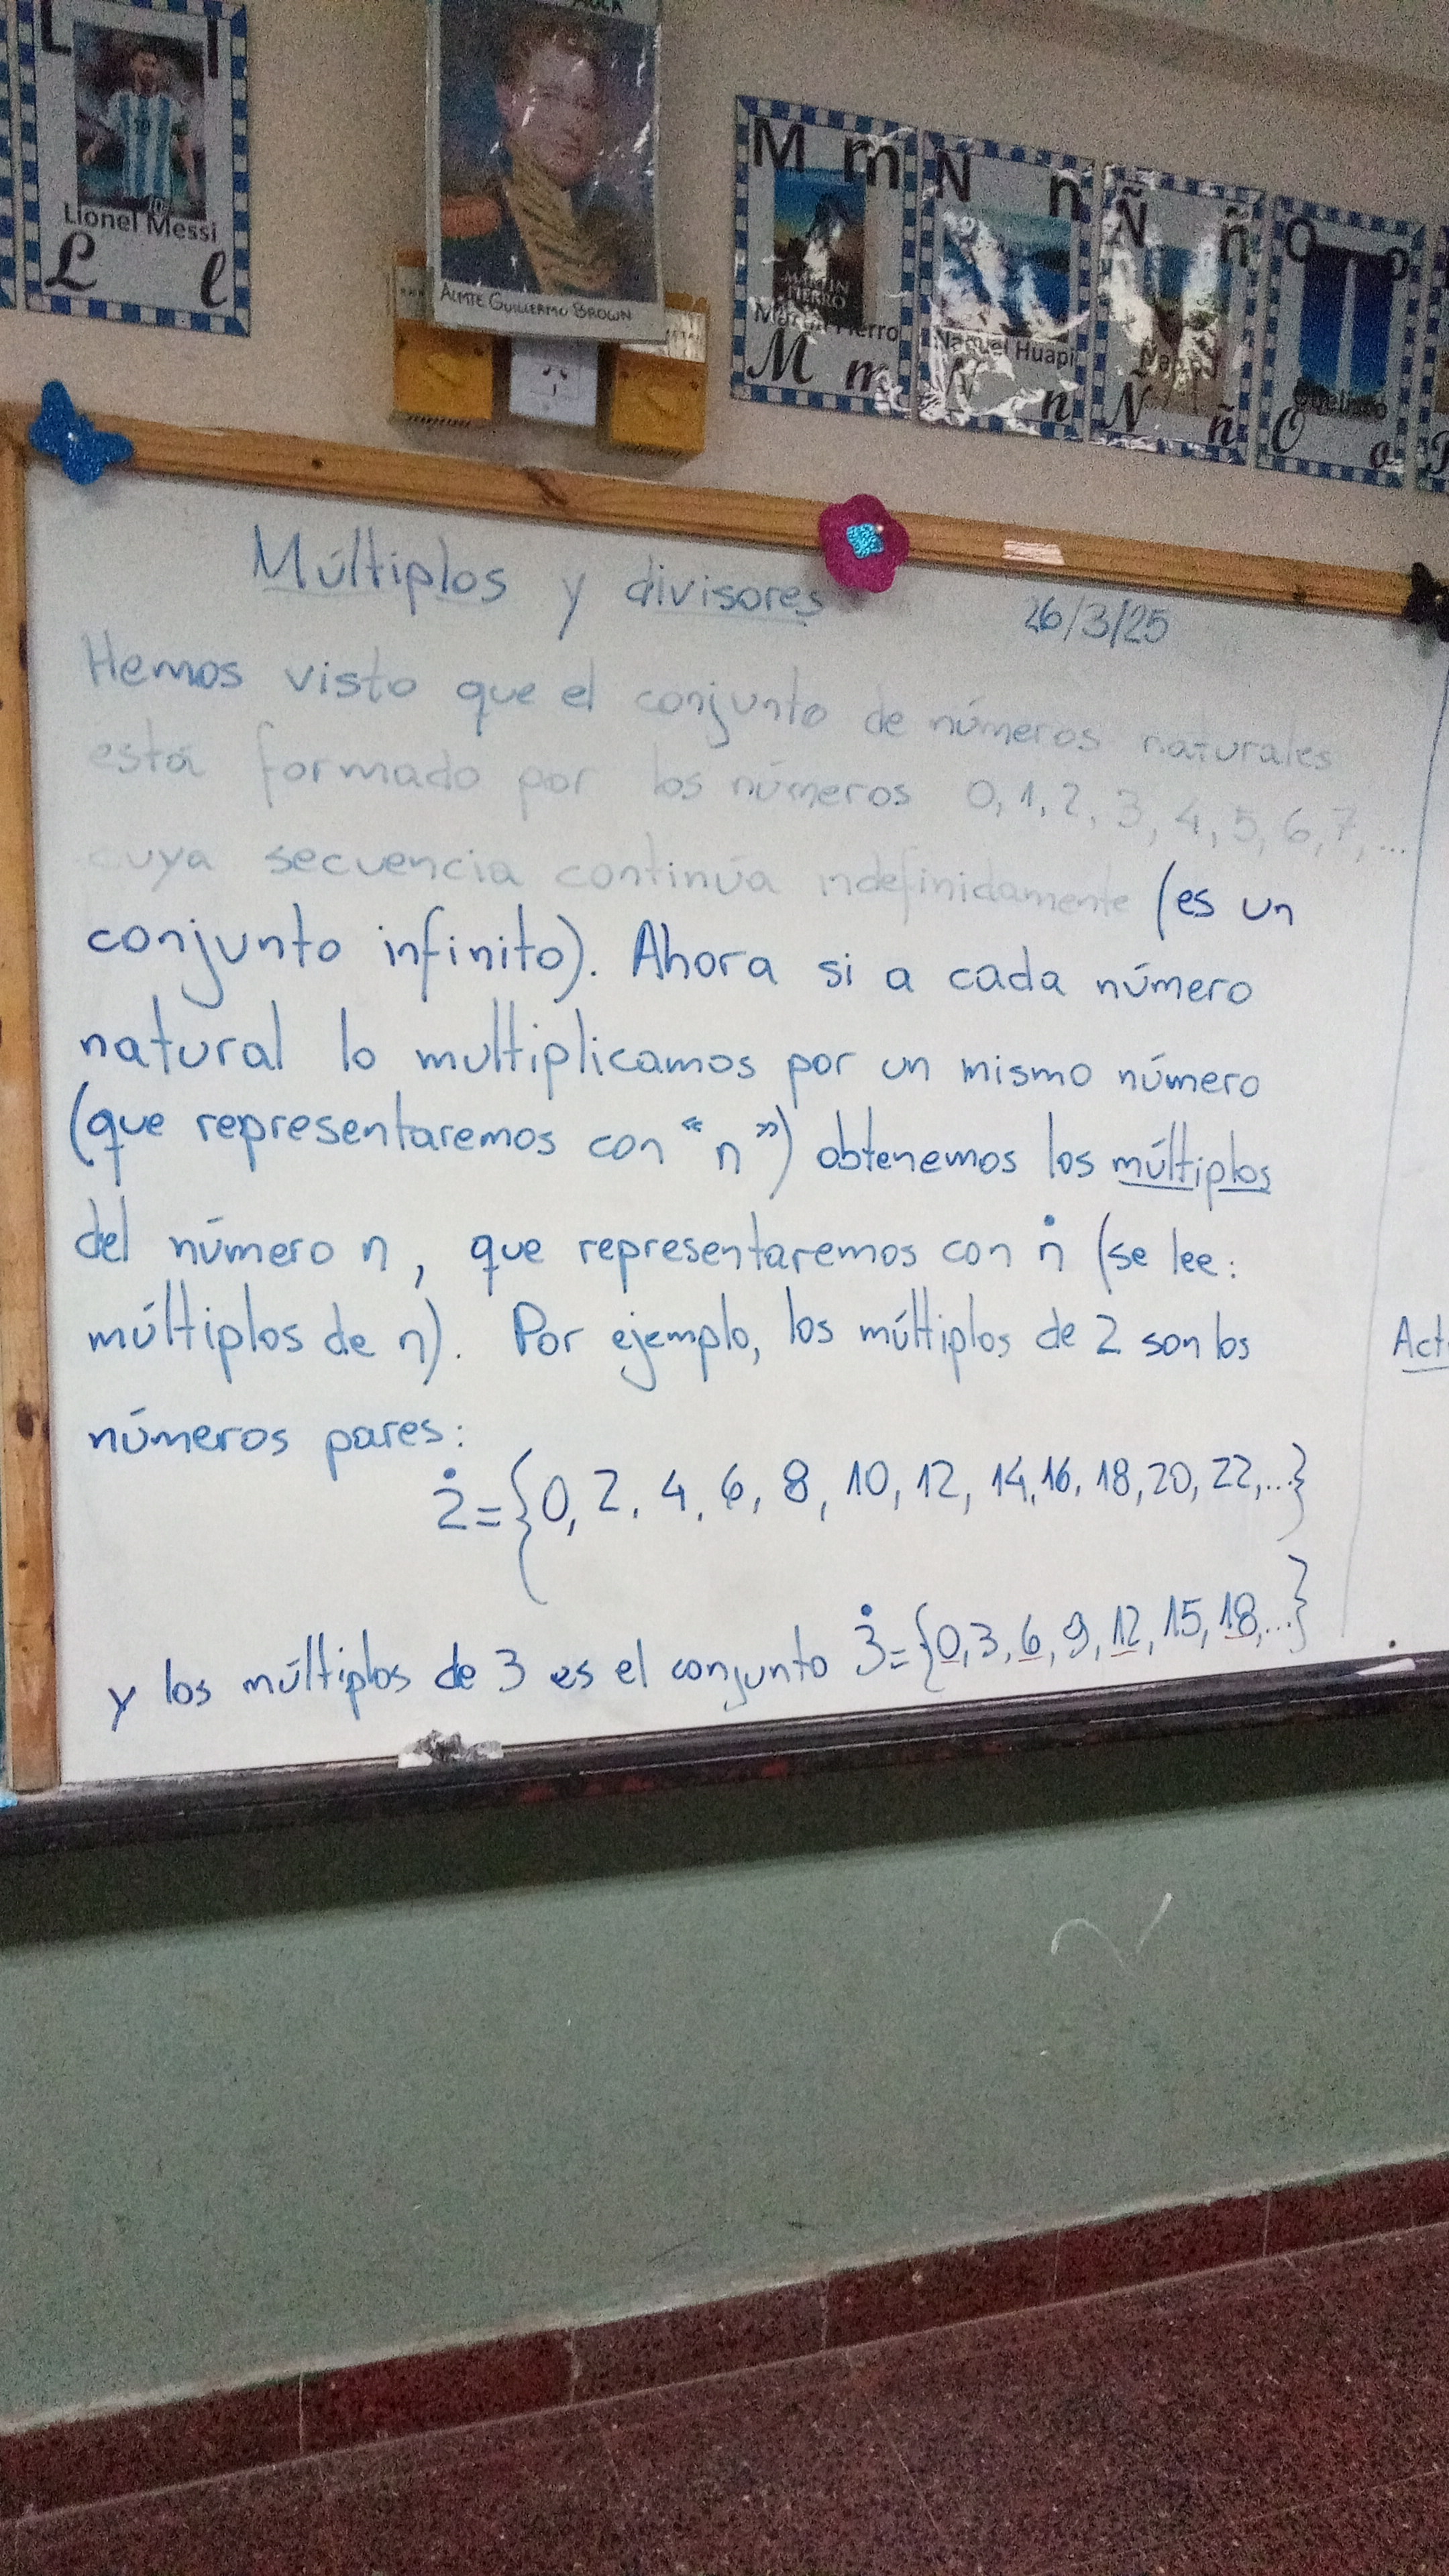 L l
Lionel Messi
L l
AULA
ALMTE GUILLERMO BROWN
M m
MARTIN
FIERRO
Martín Fierro
M m
N n
Nahuel Huapi
N n
Ñ ñ
N ñ
O o
Obelisco
O o
Múltiplos y divisores
26/3/25
Hemos visto que el conjunto de números naturales
está formado por los números 0, 1, 2, 3, 4, 5, 6, 7, ...
cuya secuencia continúa indefinidamente (es un
conjunto infinito). Ahora si a cada número
natural lo multiplicamos por un mismo número
(que representaremos con "n") obtenemos los múltiplos
del número n, que representaremos con ṅ (se lee:
múltiplos de n). Por ejemplo, los múltiplos de 2 son los
números pares:
2̇ = {0, 2, 4, 6, 8, 10, 12, 14, 16, 18, 20, 22, ...}
y los múltiplos de 3 es el conjunto 3̇ = {0, 3, 6, 9, 12, 15, 18, ...}
Act